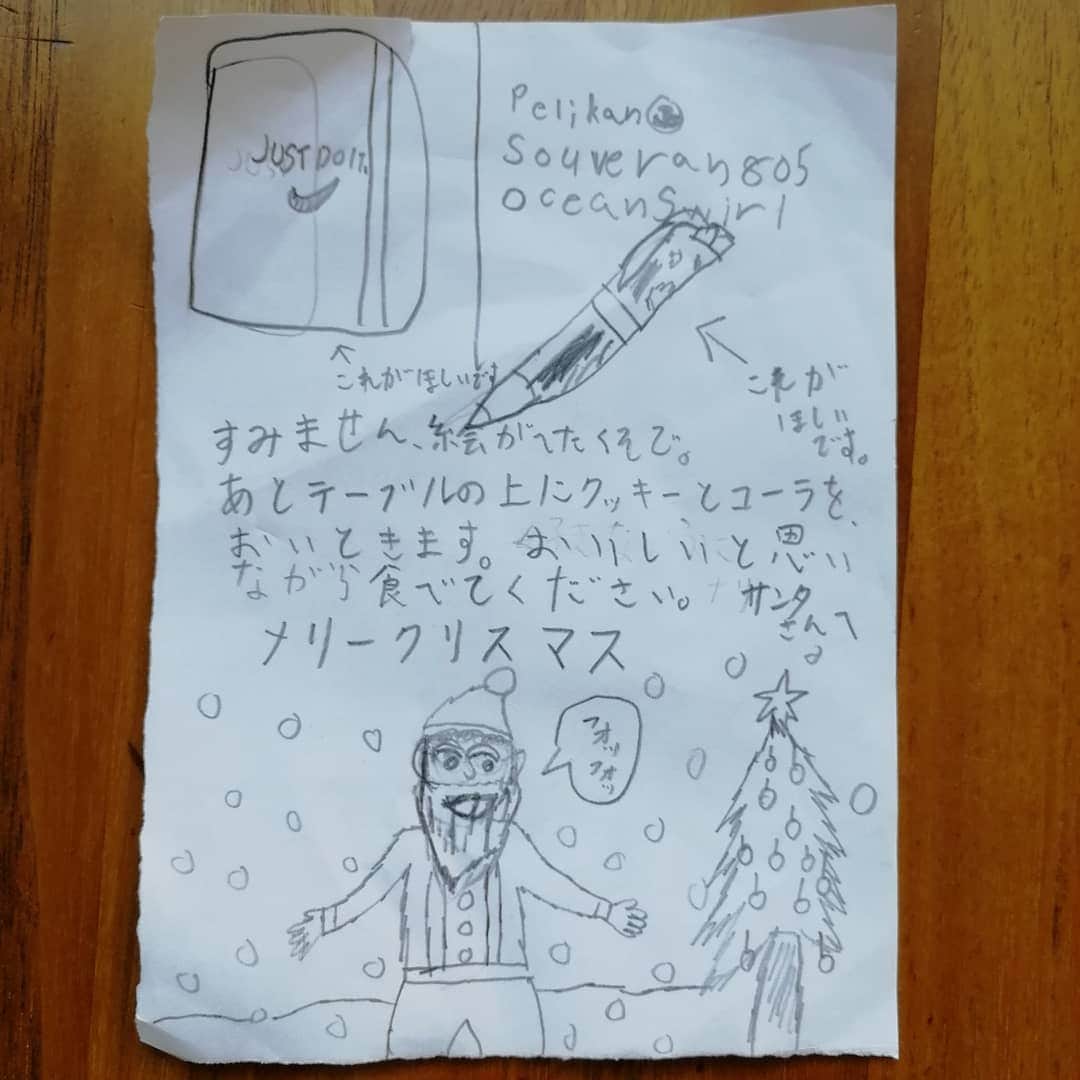 JUST DO IT.
Pelikan
Souveran805
oceanSwirl
これがほしいです
これが
ほしい
です。
すみません、絵がへたくそで。
あとテーブルの上にクッキーとコーラを、
おいときます。おいしいと思い
ながら食べてください。
サンタ
さんへ
メリークリスマス
フォッ
フォッ